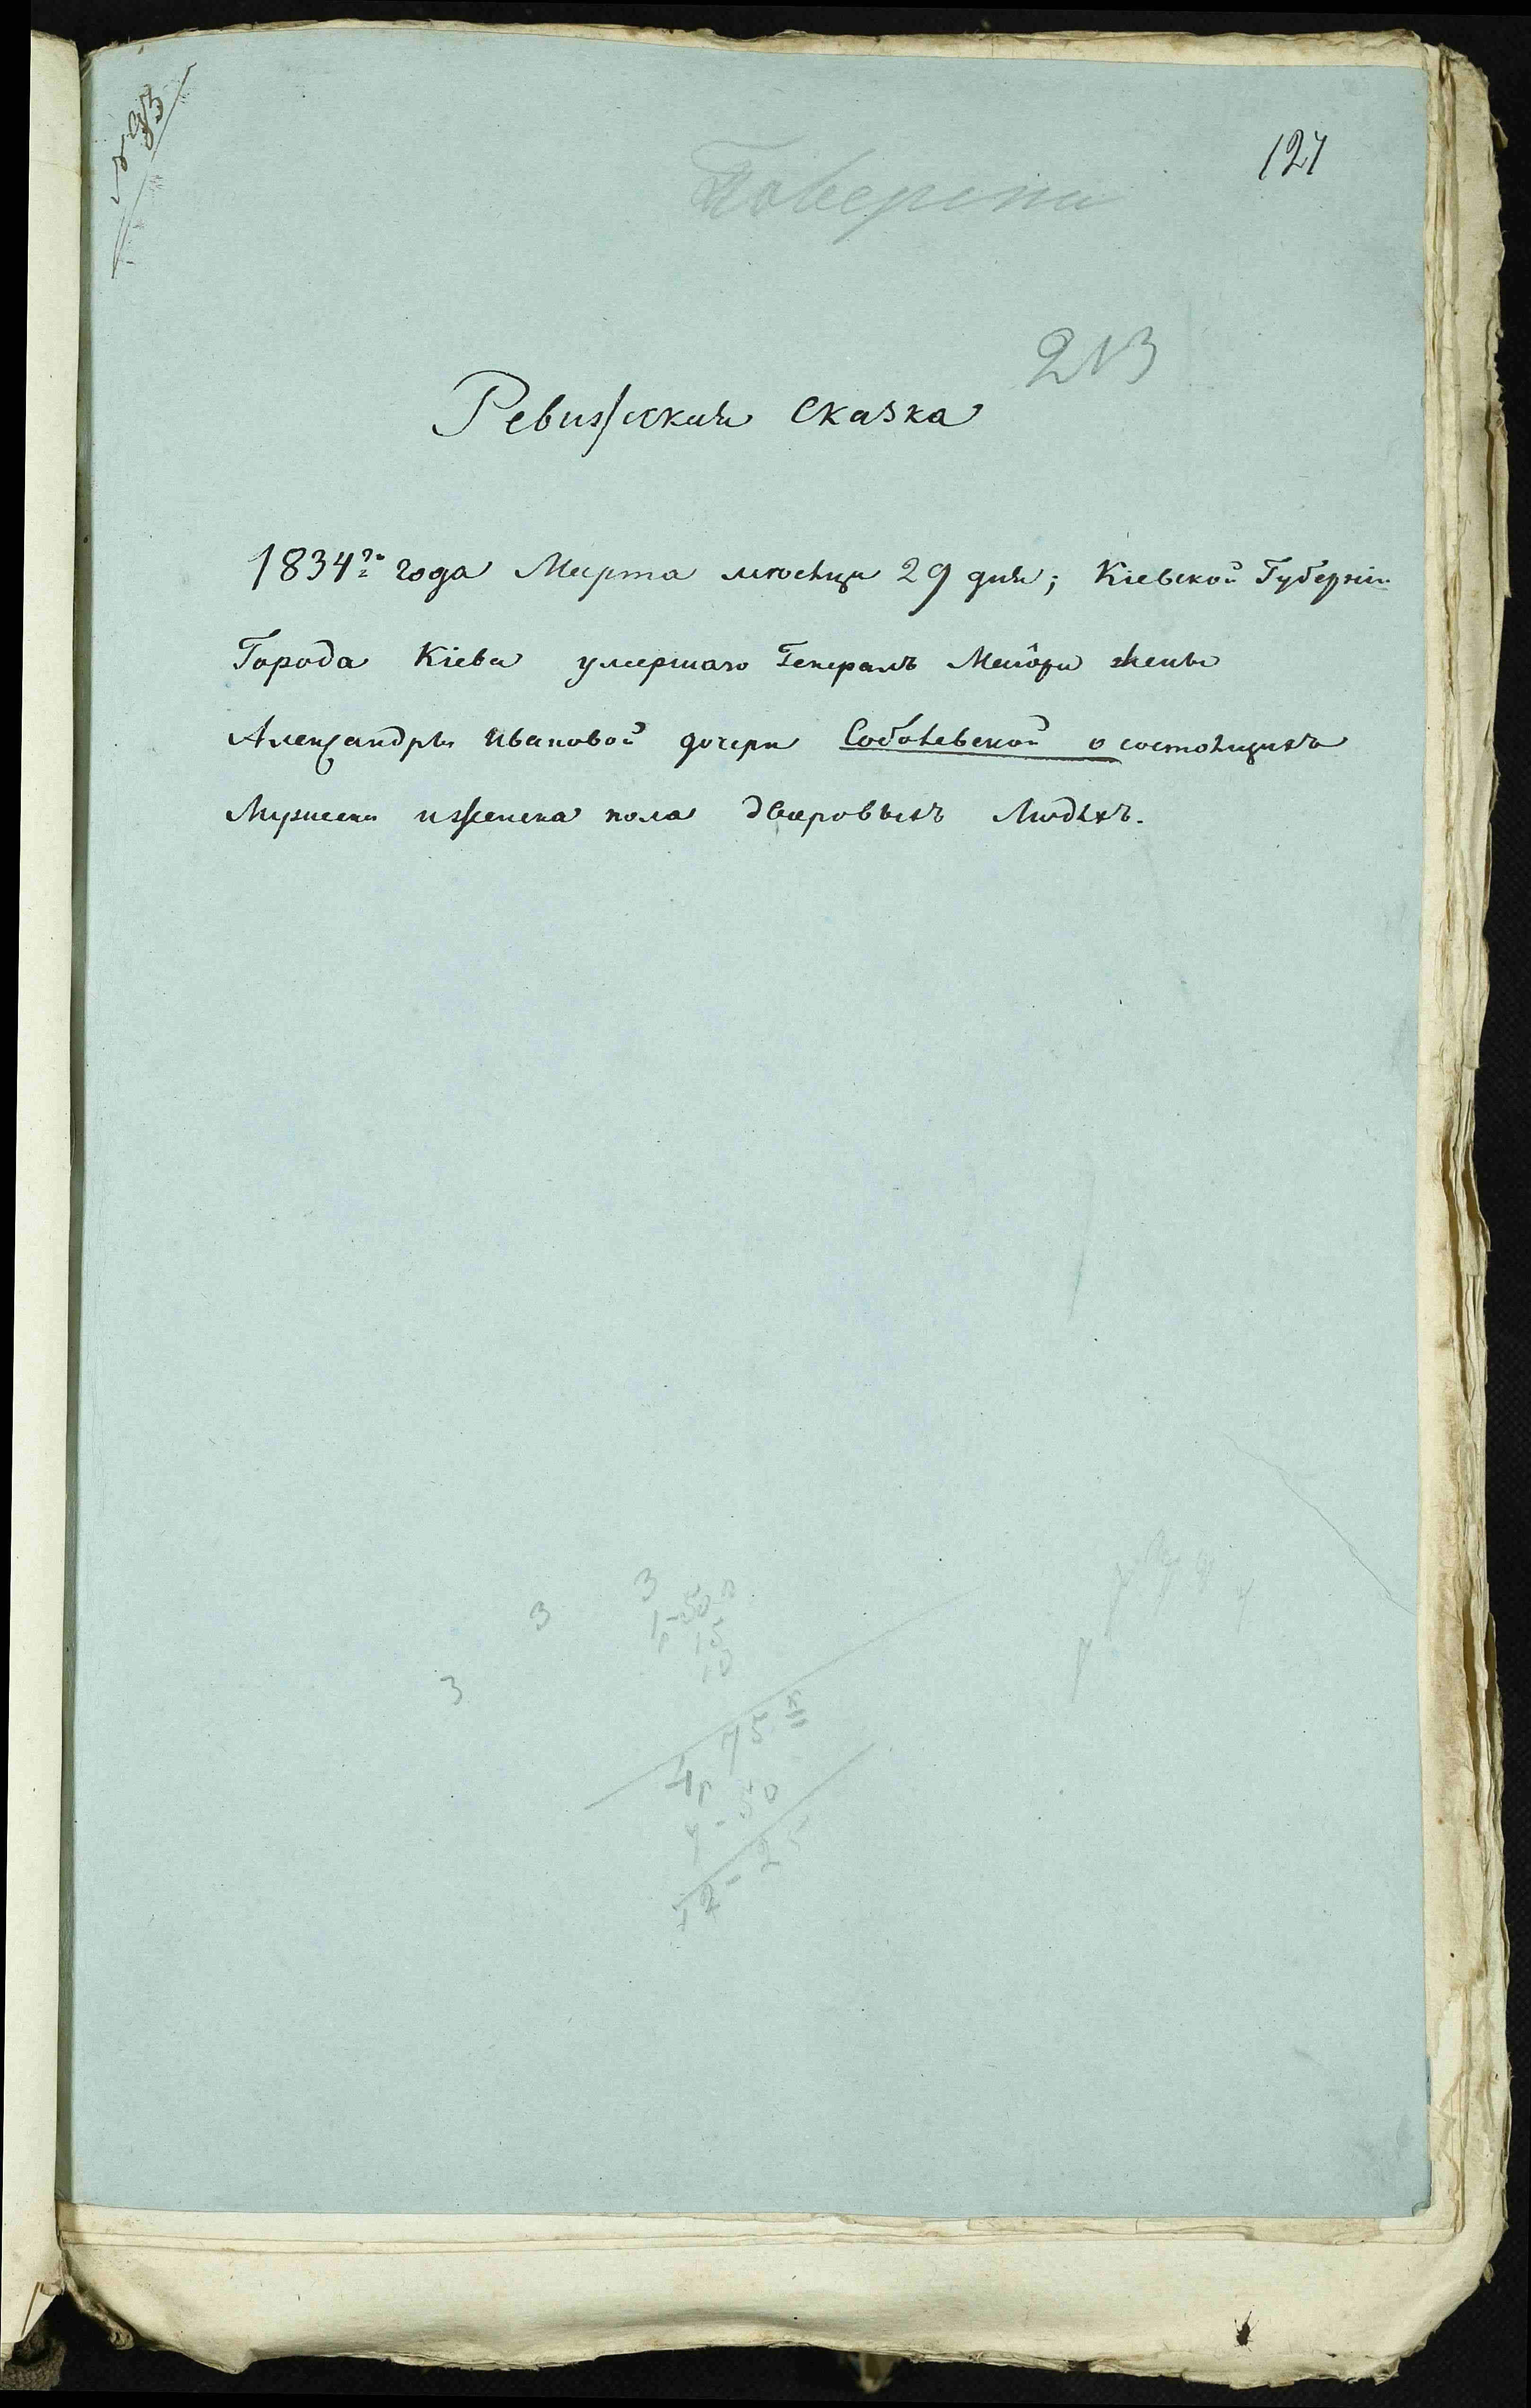 127
Поверена
213
Ревизская сказка
1834го года Марта мѣсяца 29 дня; Кіевской Губерніи
Города Кіева умершаго Генералъ Маіора жены
Александры Ивановой дочери Соболевской о состоящихъ
Мужеска и женска пола дворовыхъ людяхъ.
3
3
1р-50
15
10
3
75
4р
50
2-25